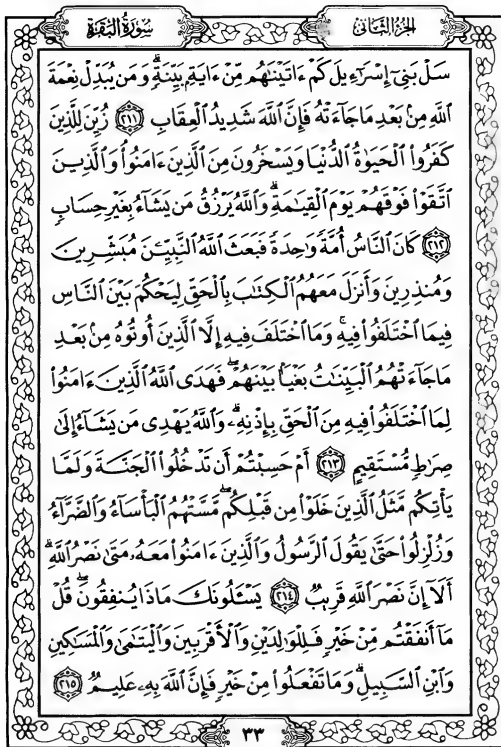 سُورَةُ الْبَقَرَةِ
الجُزْءُ الثَّانِي
سَلْ بَنِيٓ إِسْرَٰٓءِيلَ كَمْ ءَاتَيْنَٰهُم مِّنْ ءَايَةِۭ بَيِّنَةٍۗ وَمَن يُبَدِّلْ نِعْمَةَ
ٱللَّهِ مِنۢ بَعْدِ مَا جَآءَتْهُ فَإِنَّ ٱللَّهَ شَدِيدُ ٱلْعِقَابِ ٢١١ زُيِّنَ لِلَّذِينَ
كَفَرُوا۟ ٱلْحَيَوٰةُ ٱلدُّنْيَا وَيَسْخَرُونَ مِنَ ٱلَّذِينَ ءَامَنُوا۟ وَٱلَّذِينَ
ٱتَّقَوْا۟ فَوْقَهُمْ يَوْمَ ٱلْقِيَٰمَةِۗ وَٱللَّهُ يَرْزُقُ مَن يَشَآءُ بِغَيْرِ حِسَابٍ
٢١٢ كَانَ ٱلنَّاسُ أُمَّةً وَٰحِدَةً فَبَعَثَ ٱللَّهُ ٱلنَّبِيِّـۧنَ مُبَشِّرِينَ
وَمُنذِرِينَ وَأَنزَلَ مَعَهُمُ ٱلْكِتَٰبَ بِٱلْحَقِّ لِيَحْكُمَ بَيْنَ ٱلنَّاسِ
فِيمَا ٱخْتَلَفُوا۟ فِيهِۚ وَمَا ٱخْتَلَفَ فِيهِ إِلَّا ٱلَّذِينَ أُوتُوهُ مِنۢ بَعْدِ
مَا جَآءَتْهُمُ ٱلْبَيِّنَٰتُ بَغْيًۢا بَيْنَهُمْۖ فَهَدَى ٱللَّهُ ٱلَّذِينَ ءَامَنُوا۟
لِمَا ٱخْتَلَفُوا۟ فِيهِ مِنَ ٱلْحَقِّ بِإِذْنِهِۦۗ وَٱللَّهُ يَهْدِى مَن يَشَآءُ إِلَىٰ
صِرَٰطٍ مُّسْتَقِيمٍ ٢١٣ أَمْ حَسِبْتُمْ أَن تَدْخُلُوا۟ ٱلْجَنَّةَ وَلَمَّا
يَأْتِكُم مَّثَلُ ٱلَّذِينَ خَلَوْا۟ مِن قَبْلِكُمۖ مَّسَّتْهُمُ ٱلْبَأْسَآءُ وَٱلضَّرَّآءُ
وَزُلْزِلُوا۟ حَتَّىٰ يَقُولَ ٱلرَّسُولُ وَٱلَّذِينَ ءَامَنُوا۟ مَعَهُۥ مَتَىٰ نَصْرُ ٱللَّهِۗ
أَلَآ إِنَّ نَصْرَ ٱللَّهِ قَرِيبٌ ٢١٤ يَسْـَٔلُونَكَ مَاذَا يُنفِقُونَۖ قُلْ
مَآ أَنفَقْتُم مِّنْ خَيْرٍ فَلِلْوَٰلِدَيْنِ وَٱلْأَقْرَبِينَ وَٱلْيَتَٰمَىٰ وَٱلْمَسَٰكِينِ
وَٱبْنِ ٱلسَّبِيلِۗ وَمَا تَفْعَلُوا۟ مِنْ خَيْرٍ فَإِنَّ ٱللَّهَ بِهِۦ عَلِيمٌ ٢١٥
٣٣